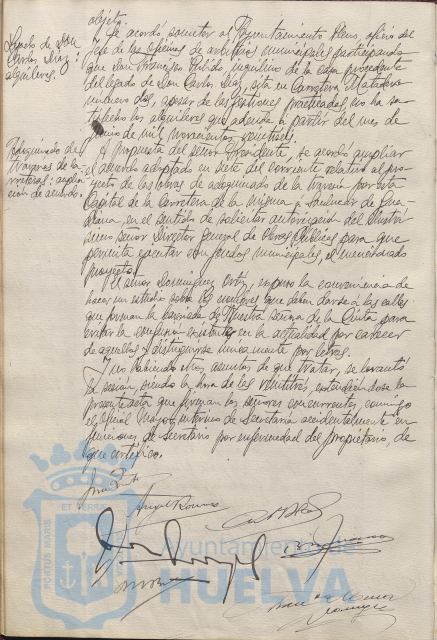 objeto.
Legado de Don
Carlos Díaz:
alquileres.
Se acordó someter al Ayuntamiento Pleno, oficio del
Jefe de la Oficina de arbitrios municipales participando
que Don Francisco Pulido inquilino de la casa procedente
del legado de Don Carlos Díaz, sita en Carretera Matadero
número dos, apesar de las gestiones practicadas, no ha sa-
tisfecho los alquileres que adeuda a partir del mes de
Junio de mil novecientos veintiseis.
Adoquinado de
travesías de la
carretera: amplia-
ción de acuerdo.
A propuesta del señor Presidente, se acordó ampliar
el acuerdo adoptado en siete del corriente relativo al pro-
yecto de las obras de adoquinado de la travesía por esta
Capital de la Carretera de la misma a Sanlúcar de Gua-
diana, en el sentido de solicitar autorización del Ilustrí-
simo señor Director General de Obras Públicas para que
permita ejecutar con fondos municipales, el mencionado
proyecto.
El señor Domínguez Ortiz, expuso la conveniencia de
hacer un estudio sobre los nombres que deban darse a las calles
que forman la barriada de Nuestra Señora de la Cinta para
evitar la confusión existente en la actualidad por carecer
de aquellos y distinguirse únicamente por letras.
Y no habiendo otros asuntos de que tratar, se levantó
la sesión, siendo la hora de las veintitrés, extendiéndose la
presente acta que firman los señores concurrentes, conmigo
el Oficial Mayor interino de Secretaría accidentalmente en
funciones de Secretario por enfermedad del propietario, de
que certifico.
PORTUS MARIS ET TERRE
Ayuntamiento de
HUELVA